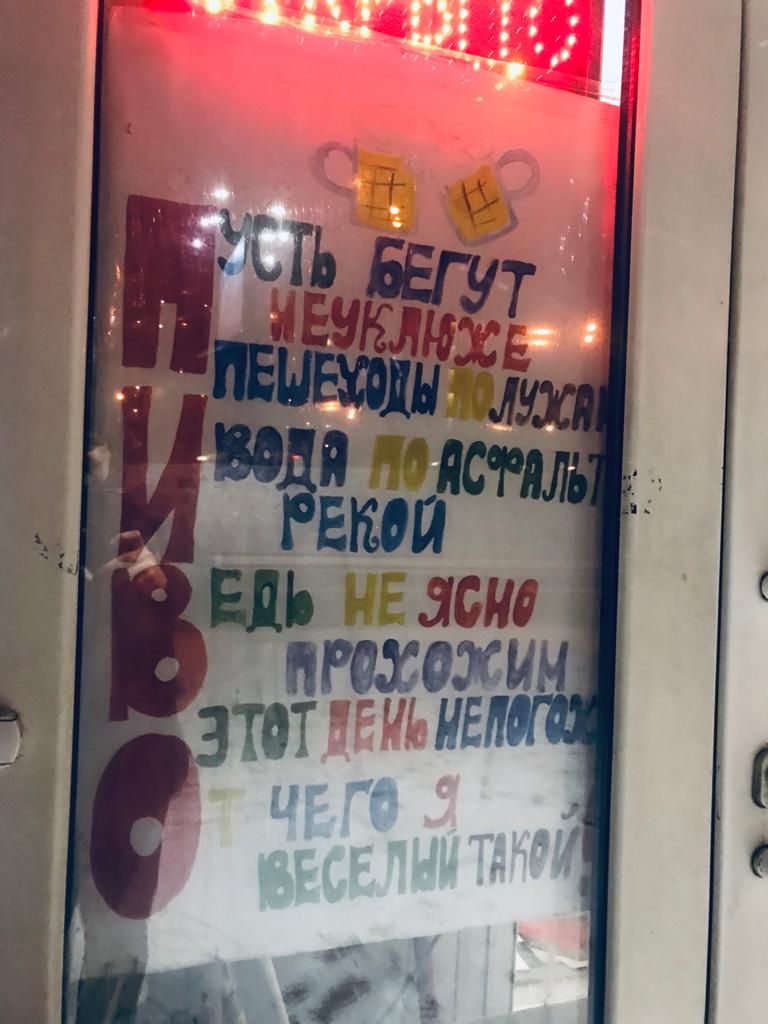 ПУСТЬ БЕГУТ
НЕУКЛЮЖЕ
ПЕШЕХОДЫ ПО ЛУЖАМ
И ВОДА ПО АСФАЛЬТ
РЕКОЙ
ВЕДЬ НЕ ЯСНО
ПРОХОЖИМ
ЭТОТ ДЕНЬ НЕПОГОЖ
ОТ ЧЕГО Я
ВЕСЕЛЫЙ ТАКОЙ!